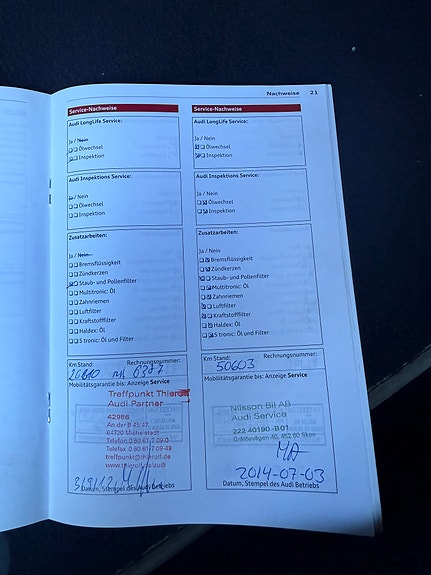 Nachweise 21
Service-Nachweise
Audi LongLife Service:
Ja / Nein
Ölwechsel
Inspektion
Audi Inspektions Service:
Ja / Nein
Ölwechsel
Inspektion
Zusatzarbeiten:
Ja / Nein
Bremsflüssigkeit
Zündkerzen
Staub- und Pollenfilter
Multitronic: Öl
Zahnriemen
Luftfilter
Kraftstofffilter
Haldex: Öl
S tronic: Öl und Filter
Km Stand: Rechnungsnummer:
Mobilitätsgarantie bis: Anzeige Service
Treffpunkt Thierolf
Audi Partner
42986
An der B 45/47
64720 Michelstadt
Telefon 0 60 61/7 09-0
Telefax 0 60 61/7 09-49
treffpunkt@thierolf.de
www.thierolf.de/audi
Datum, Stempel des Audi Betriebs
Service-Nachweise
Audi LongLife Service:
Ja / Nein
Ölwechsel
Inspektion
Audi Inspektions Service:
Ja / Nein
Ölwechsel
Inspektion
Zusatzarbeiten:
Ja / Nein
Bremsflüssigkeit
Zündkerzen
Staub- und Pollenfilter
Multitronic: Öl
Zahnriemen
Luftfilter
Kraftstofffilter
Haldex: Öl
S tronic: Öl und Filter
Km Stand: Rechnungsnummer:
50603
Mobilitätsgarantie bis: Anzeige Service
Nilsson Bil AB
Audi Service
222 40190 -B01
452 60 Skee
MA
2014-07-03
Datum, Stempel des Audi Betriebs